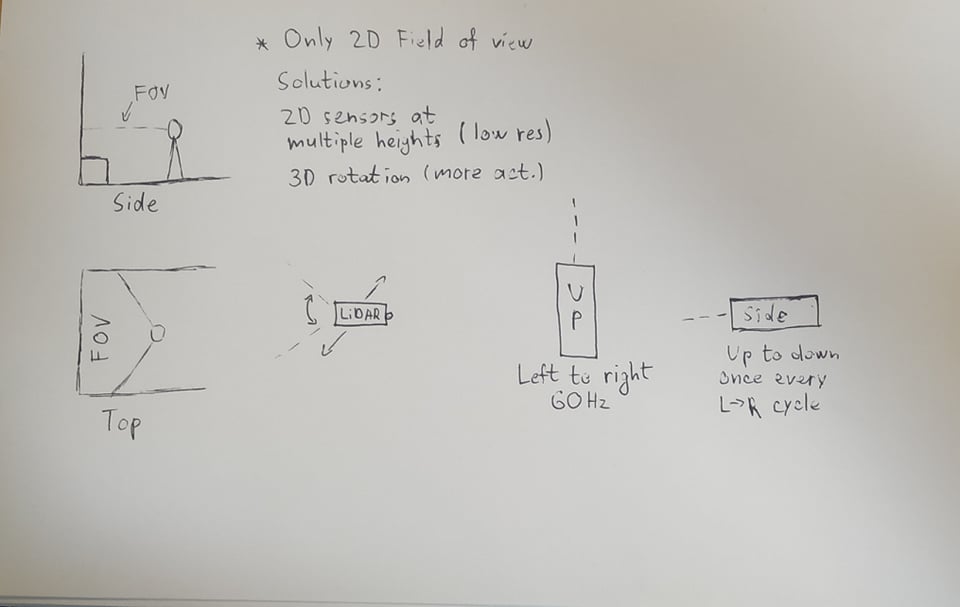 * Only 2D Field of view
Solutions:
2D sensors at
multiple heights (low res)
3D rotation (more act.)
FOV
Side
FOV
Top
LiDAR
UP
Left to right
60Hz
Side
Up to down
once every
L→R cycle